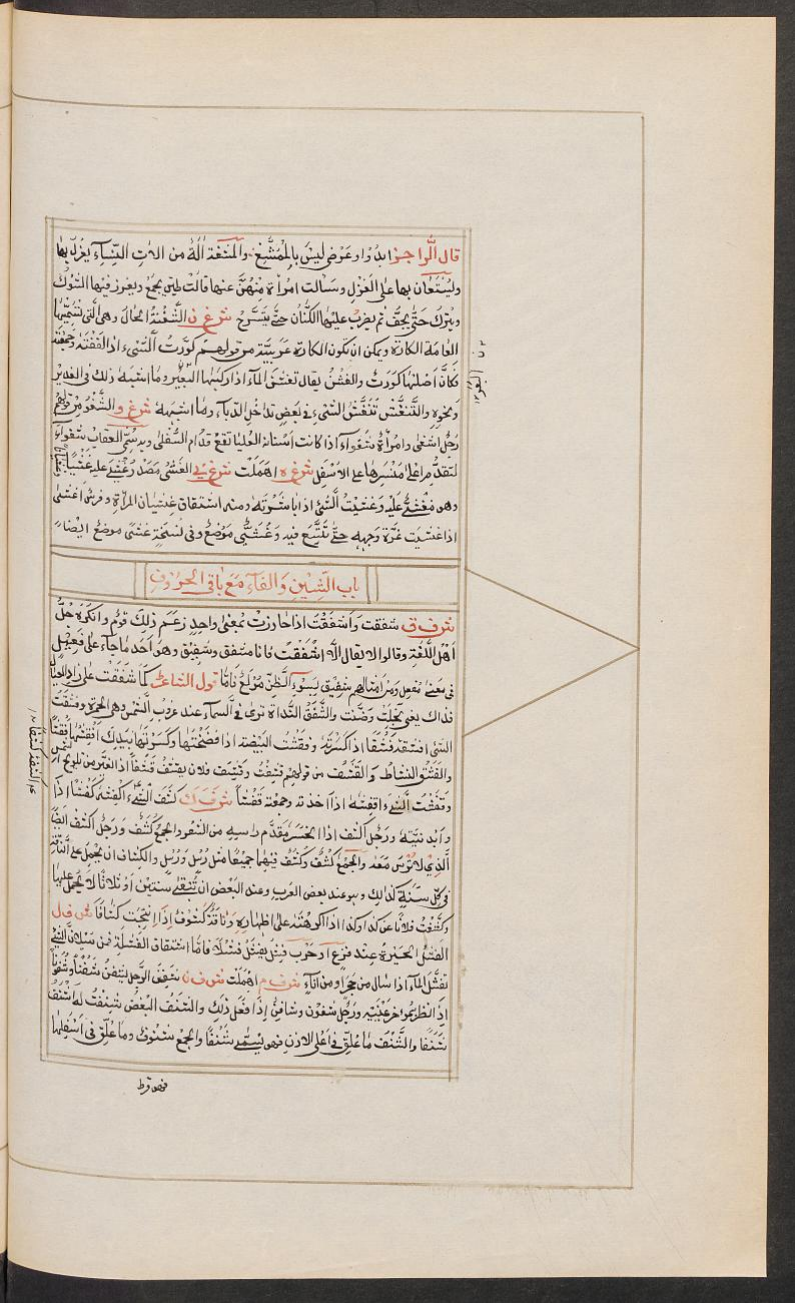 قال الراجز ابدوا وعرض ليس بالممشغ والمشغة الة من الات النساء يغزل بها
وليستعان بها على الغزل وسالت امراة منهن عنها فقالت طين يجمع ويغرز فيها الشوك
ويترك حتى يجف ثم يضرب عليها الكتان حتى يتسرح ش غ ن الشغنة الحال وهى التى تسميها
العامة الكارة ويمكن ان تكون الكارة عربية من قولهم كورت الشىء اذا لففته وجمعته
فكان اصلها كورت والغش يقال تغش الماء اذا ركبها البعير وما اشبه ذلك فى الغدير
ونحوه والتنغش تنغش الشىء فى بعض تداخل الدباء وما اشبهه ش غ و الشغو من قولهم
رجل اشغى وامراة شغواء اذا كانت اسنانه العليا تقع قدام السفلى وبه سمى العقاب شغواء
لتقدم اعلى منسرها على الاسفل ش غ ه اهملت ش غ ى الغشى مصدر غشى عليه غشيا
وهو مغشى عليه وغشيت الشىء اذا باشرته ومنه اشتقاق غشيان المراة وفرس اغشى
اذا غشيت غرة وجهه حتى تتسع فيه وغشى موضع وفى نسخة غشى موضع ايضا
باب الشين والفاء مع باقى الحروف
ش ف ق شفقت واشفقت اذا حاذرت بمعنى واحد زعم ذلك قوم وانكره جل
اهل اللغة وقالوا لا يقال الا اشفقت فانا مشفق وشفيق وهو احد ما جاء على فعيل
فى معنى مفعل ومن امثالهم شفيق بسوء الظن مولع فاما قول الشاعر كما شفقت على الزاد العيال
فذاك يعنى بخلت وضنت والشفق الندأة ترى فى السماء عند غروب الشمس وهى الحمرة وفشقت
الشىء افشقه فشقا اذا كسرته وفقشت البيضة اذا فضختها وكسرتها بيدك افقشها فقشا
والفشق النشاط والقشف من قولهم قشف وقشف فلان يقشف قشفا اذا تغير من تلويح الشمس
وقفشت الشىء اقفشه اذا اخذته وجمعته قفشا ش ف ك كشف الشىء اكشفه كشفا اذا
وابديته ورجل اكشف اذا انحسر مقدم راسه من الشعر والجمع كشف ورجل اكشف ايضا
الذى لا ترس معه والجمع كشف وكشف فيهما جميعا مثل رسل ورسل والكشاف ان يحمل على الناقة
فى كل سنة كذلك وهو عند بعض العرب وعند البعض ان تبقى سنتين او ثلاثا لا يحمل عليها
وكشفت فلانا عن كذا وكذا اذا اكرهته على اظهاره وناقة كشوف اذا انتجت كشافا ش ف ل
الفشل الحيرة عند فزع او حرب فشل يفشل فشلا فاما اشتقاق الفشلة فمن سيلان الشىء
تفشل الماء اذا سال من حجر او من اناء ش ف م اهملت ش ف ن شفن الرجل يشفن شفنا وشفونا
اذا نظر بمؤخر عينيه ورجل شفون وشافن اذا فعل ذلك والشنف البغض شنفت له اشنف
شنفا والشنف ما علق فى اعلى الاذن فهو يسمى شنفا والجمع شنوف وما علق فى اسفلها
فهو قرط